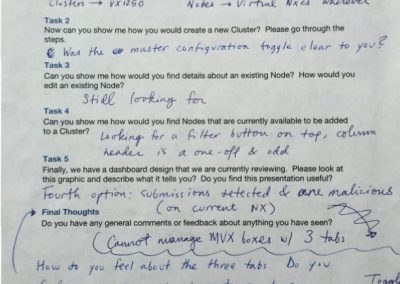 Clusters → VX1250 Nodes → Virtual NXes wherever
Task 2
Now can you show me how you would create a new Cluster? Please go through the
steps.
Was the master configuration toggle clear to you?
Task 3
Can you show me how would you find details about an existing Node? How would you
edit an existing Node?
Still looking for
Task 4
Can you show me how would you find Nodes that are currently available to be added
to a Cluster?
Looking for a filter button on top, column
header is a one-off & odd
Task 5
Finally, we have a dashboard design that we are currently reviewing. Please look at
this graphic and describe what it tells you? Do you find this presentation useful?
Fourth option: submissions detected & are malicious
(on current NX)
Final Thoughts
Do you have any general comments or feedback about anything you have seen?
(Cannot manage MVX boxes w/ 3 tabs
How do you feel about the three tabs. Do you